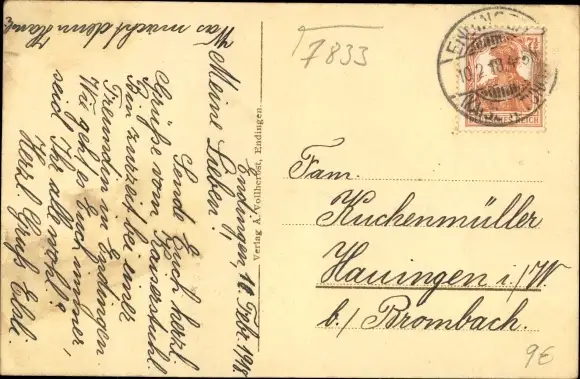 Endingen, 10. Febr. 1918
Meine Lieben!
Sende Euch herzl.
Grüße vom Kaiserstuhl.
Bin zurzeit bei einer
Freundin in Endingen.
Wie geht es Euch immer,
seid Ihr alle wohl?
Herzl. Gruß
Was macht denn
Verlag A. Vollherbst, Endingen
7833
ENDINGEN
10.2.18.4-5N
7½
DEUTSCHES REICH
Fam.
Kuckenmüller
Hauingen i/W.
b./ Brombach.
9€